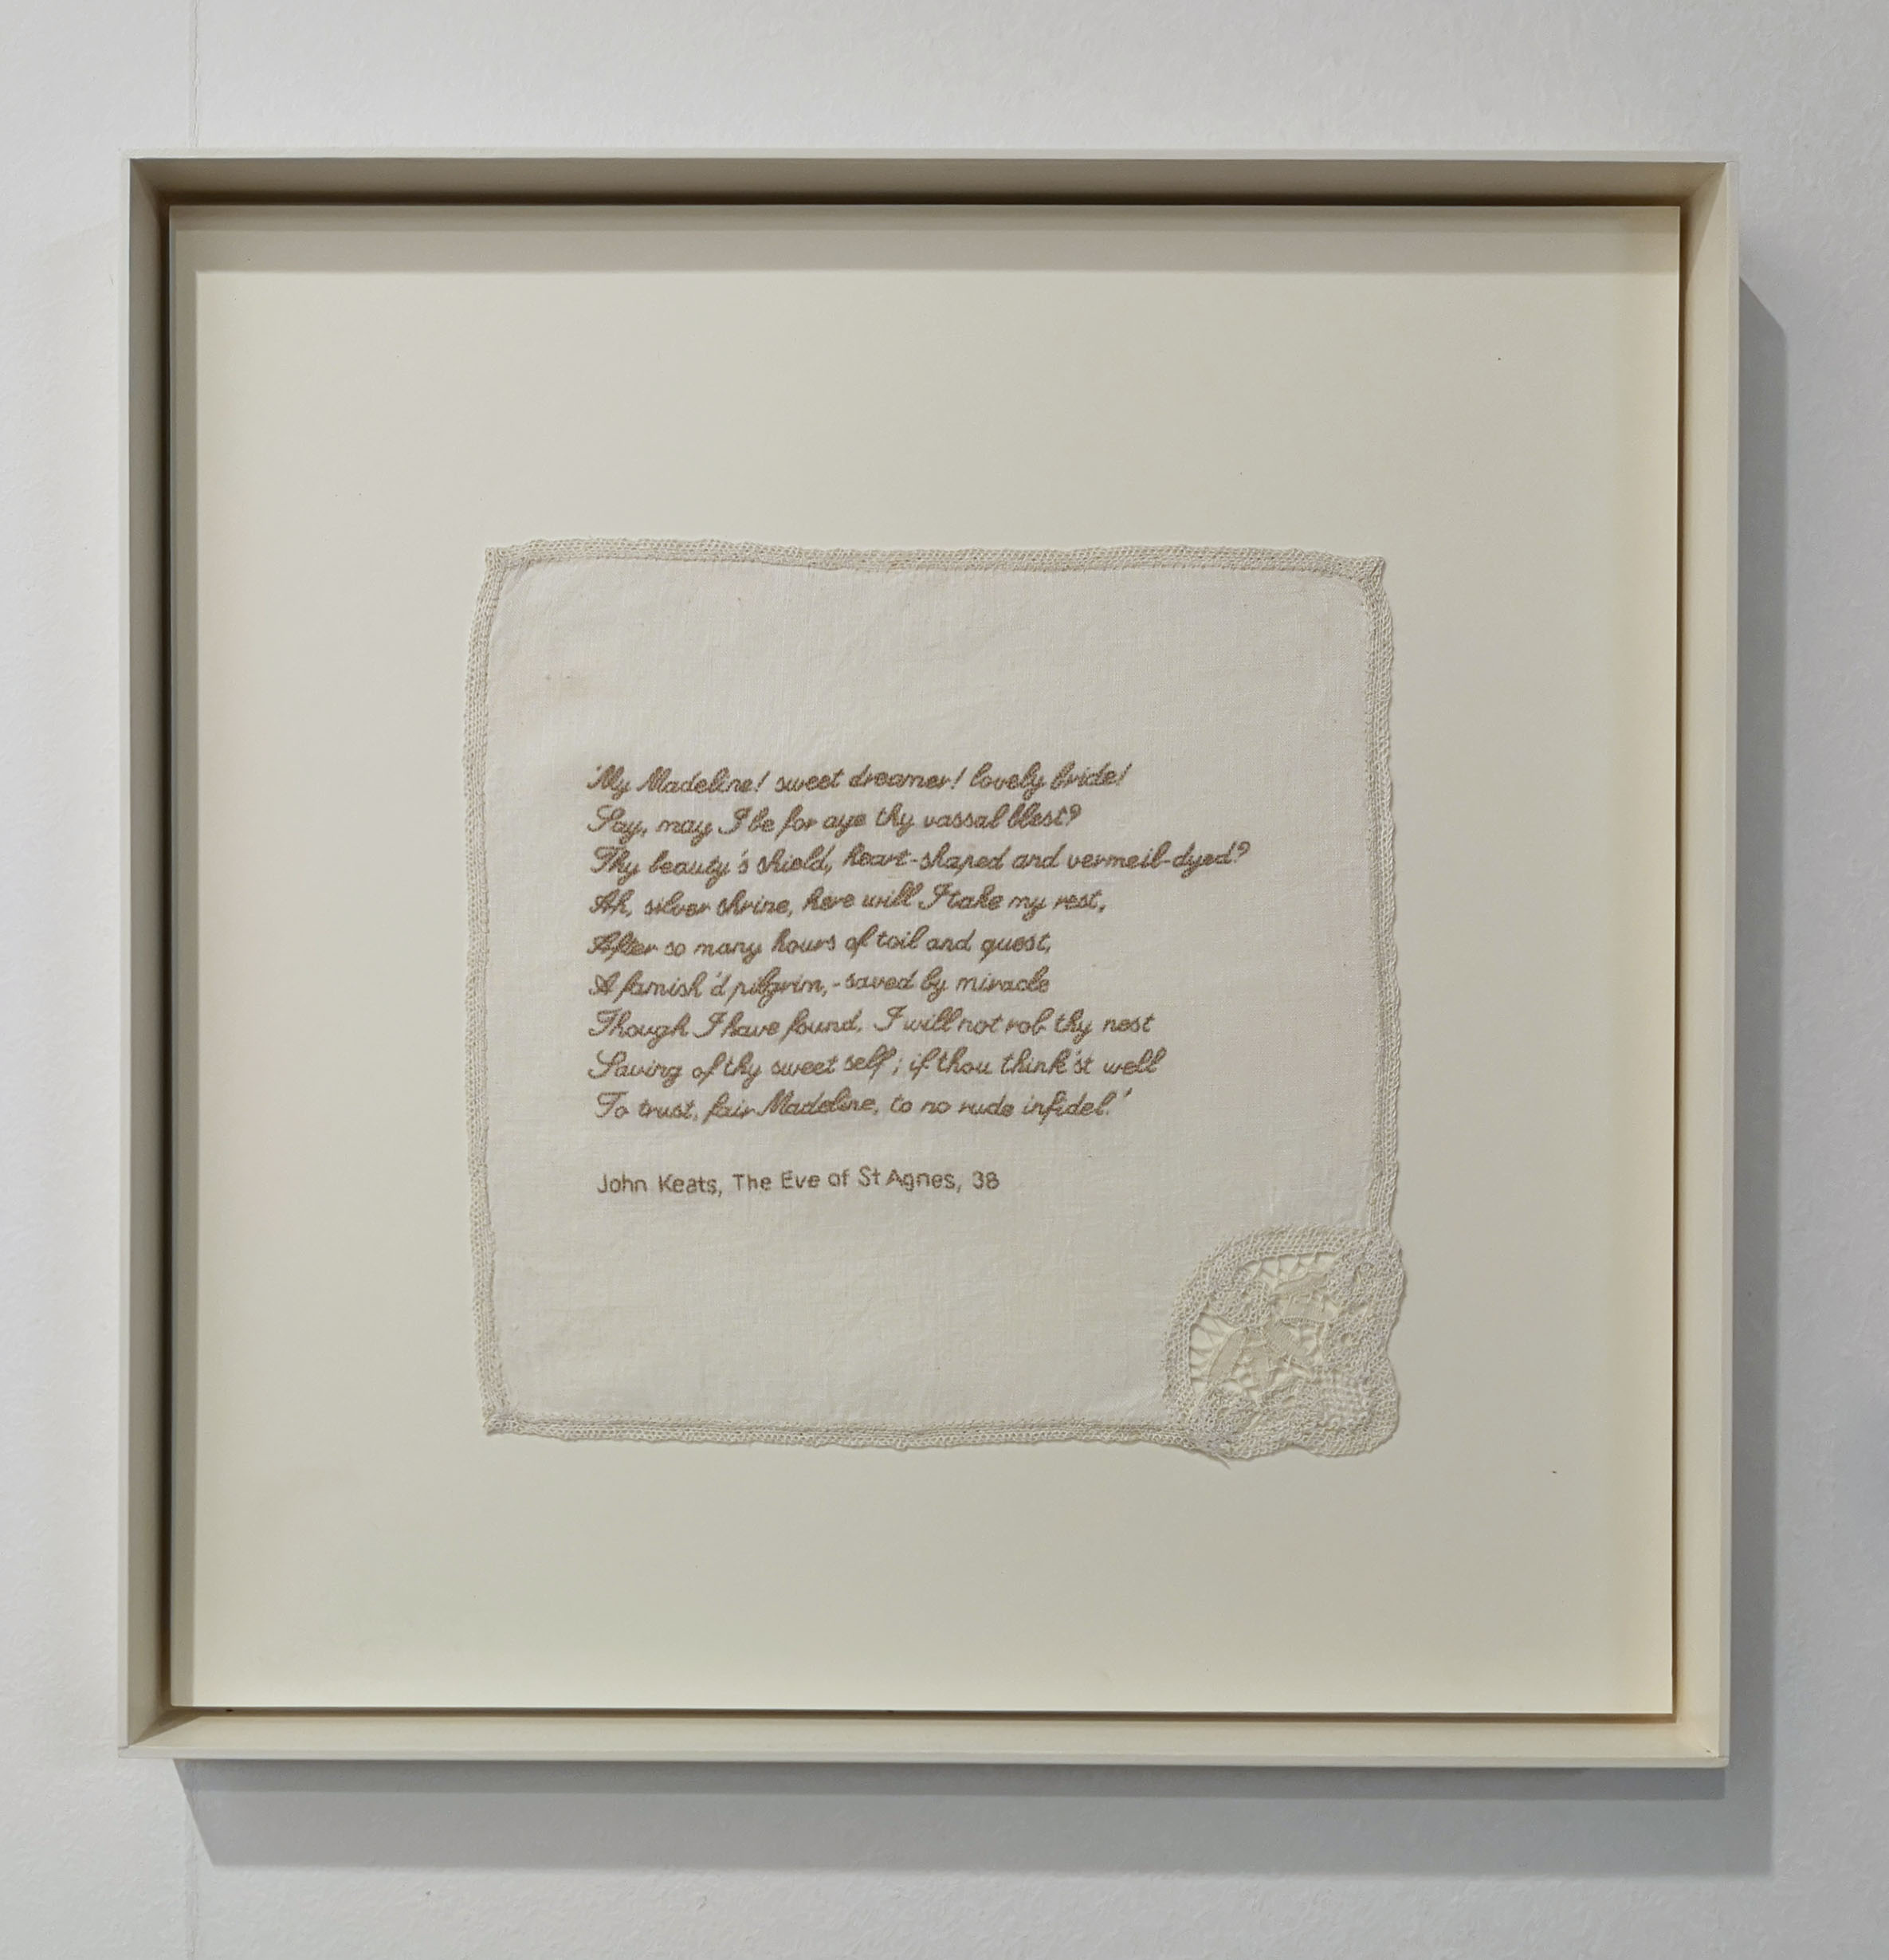 'My Madeline! sweet dreamer! lovely bride!
Say, may I be for aye thy vassal blest?
Thy beauty's shield, heart-shaped and vermeil-dyed?
Ah, silver shrine, here will I take my rest,
After so many hours of toil and quest,
A famish'd pilgrim,-saved by miracle
Though I have found, I will not rob thy nest
Saving of thy sweet self; if thou think'st well
To trust, fair Madeline, to no rude infidel.'
John Keats, The Eve of St Agnes, 38